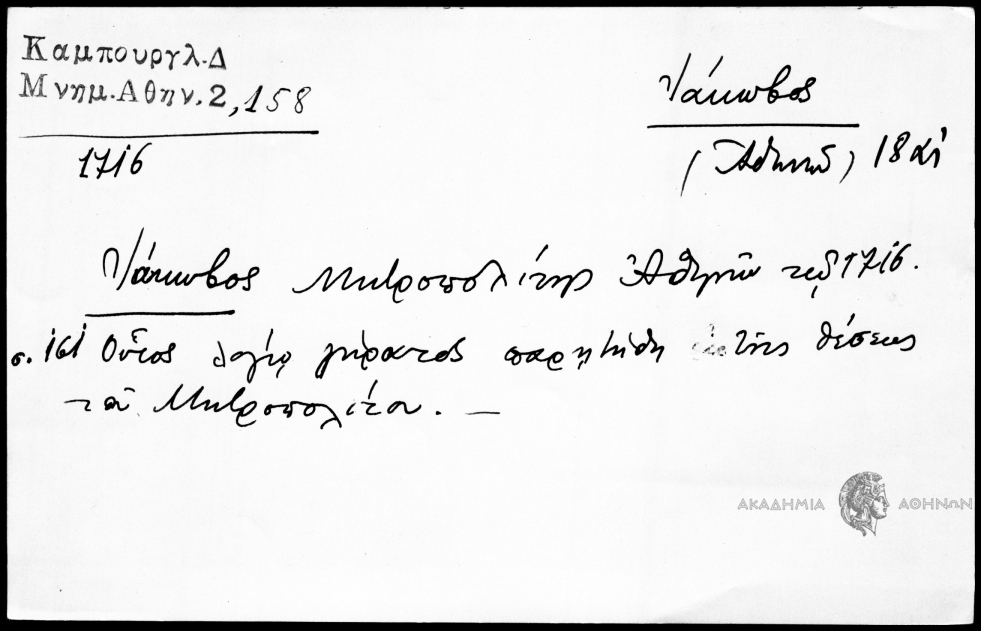 Καμπουργλ.Δ
Μνημ.Αθην.2,158
1716
Ἰάκωβος
(Ἀθηνῶν) 18 αἰ
Ἰάκωβος Μητροπολίτης Ἀθηνῶν τῷ 1716.
σ. 161 Οὗτος λόγῳ γήρατος παρῃτήθη τῆς θέσεως
τοῦ Μητροπολίτου. —
ΑΚΑΔΗΜΙΑ ΑΘΗΝΩΝ